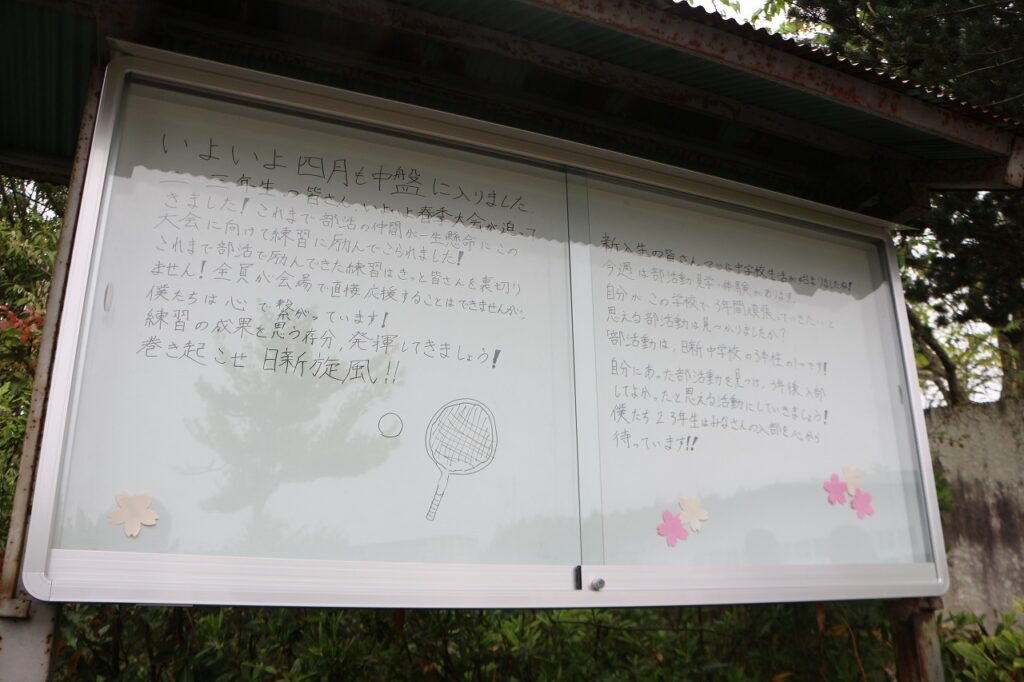 いよいよ四月も中盤に入りました.
二、三年生の皆さん、いよいよ春季大会が迫って
きました！これまで部活の仲間が一生懸命にこの
大会に向けて練習に励んでこられました！
これまで部活で励んできた練習はきっと皆さんを裏切り
ません！全員が会場で直接応援することはできませんが、
僕たちは心で繋がっています！
練習の成果を思う存分、発揮してきましょう！
巻き起こせ 日新旋風!!
新入生の皆さん、中学校生活が始まりましたね！
今週は部活動見学・体験があります。
自分がこの学校で3年間頑張っていきたいと
思える部活動は見つかりましたか？
部活動は、日新中学校の3本柱の1つです！
自分にあった部活動を見つけ、3年後、入部
してよかったと思える活動にしていきましょう！
僕たち2.3年生はみなさんの入部を心から
待っています!!